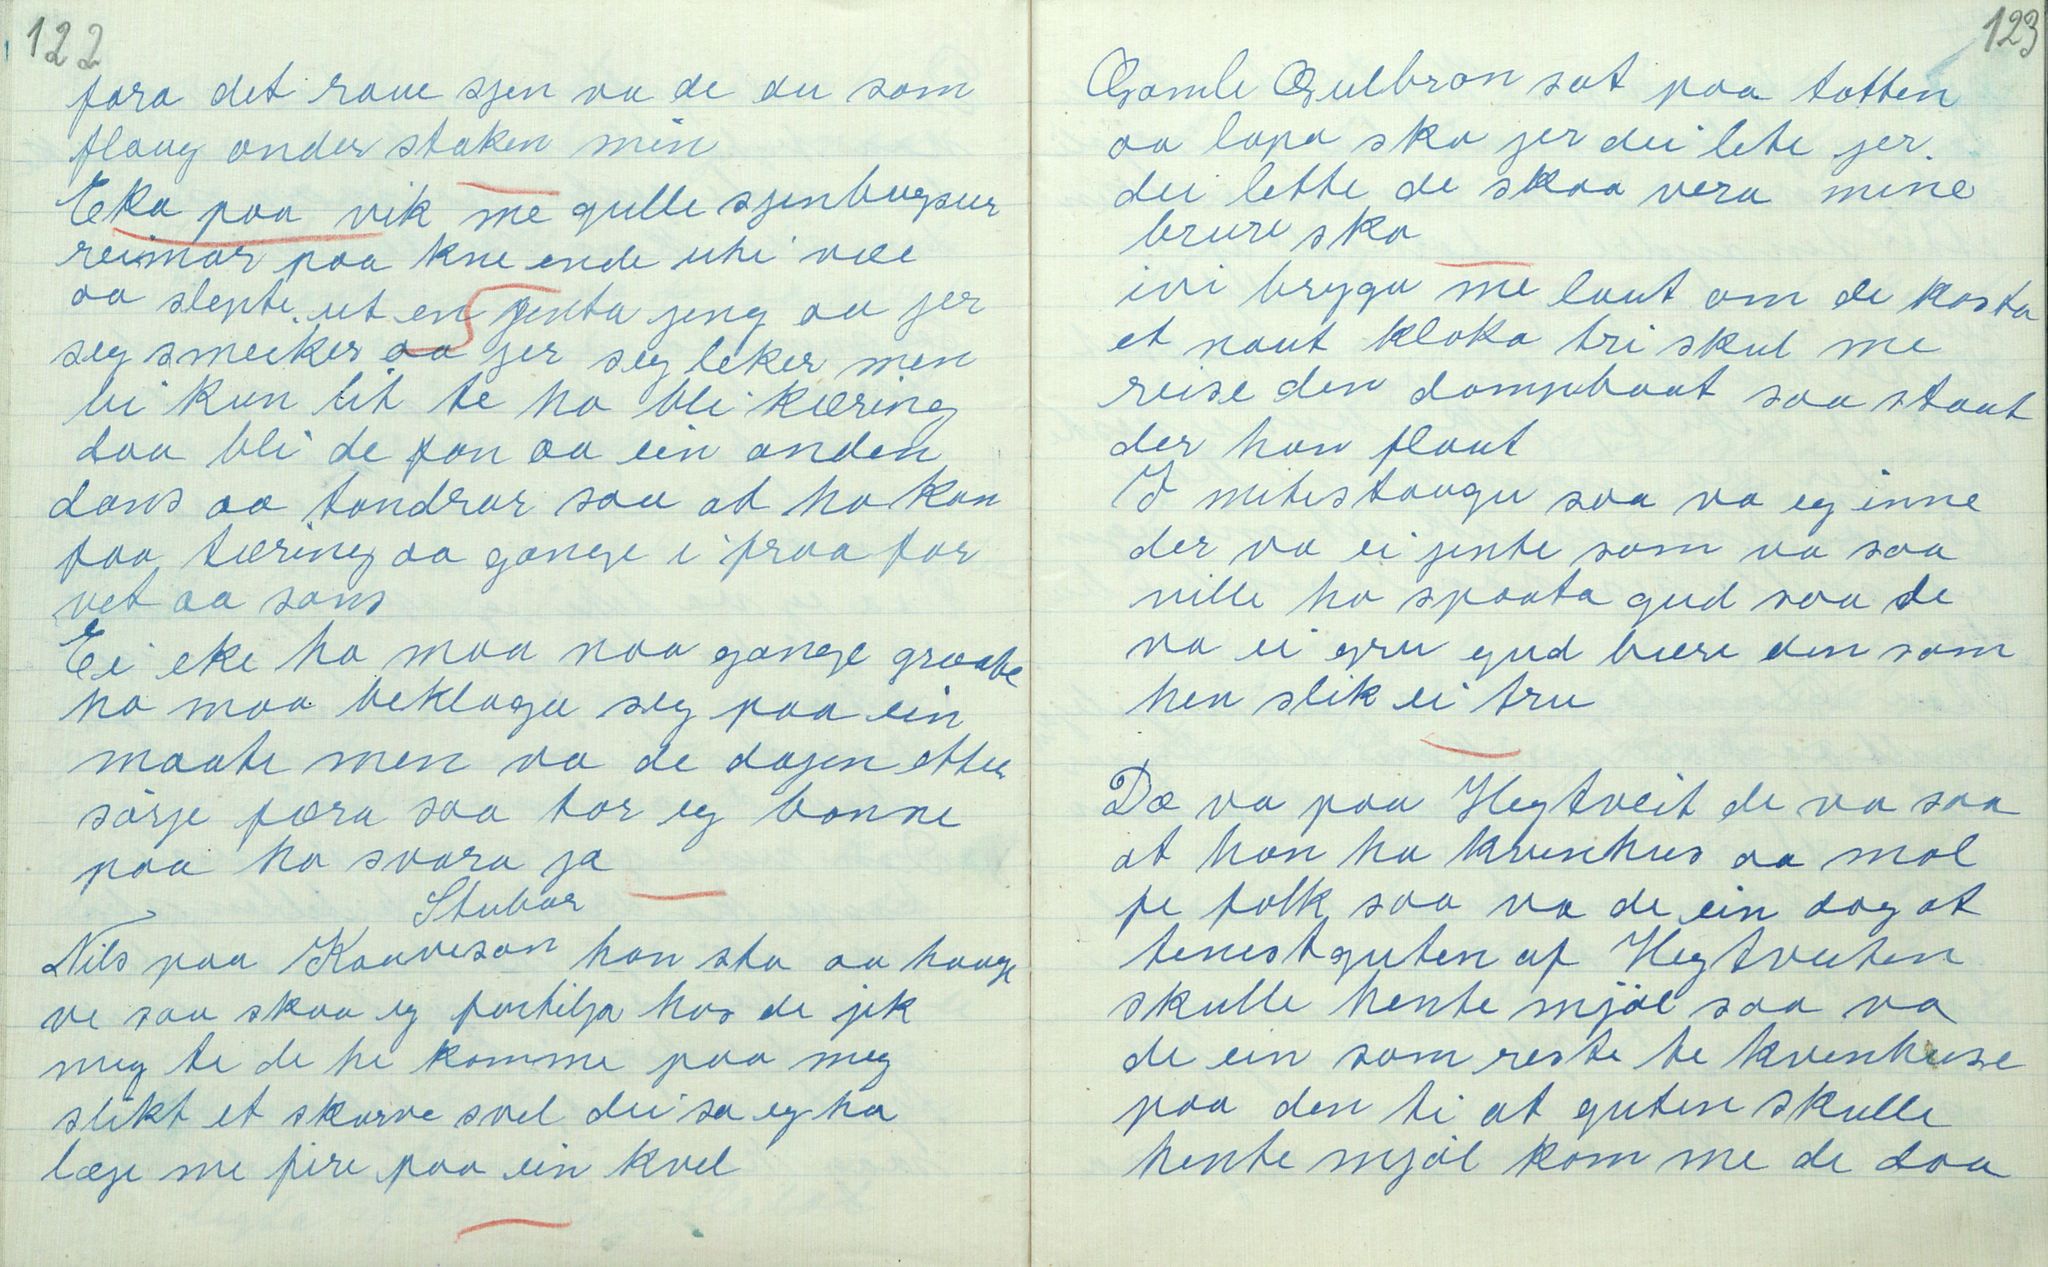 122
fara det raue sjen va de du som
flaug onder staken min
Eka paa vik me gulle sjenbugsur
reimar paa kne ende uhi væe
aa slepte ut en jenta jeng aa jer
seg smeiker aa jer seg leker men
bi kun lit te ho bli kæring
daa bli de fan aa ein anden
dans aa tondrar saa at ho kan
faa tæring aa gange i fraa for
vet aa sans
Ei eke ho maa naa gange graate
ho maa beklaga seg paa ein
maate men va de dagen etter
sørje færa saa tor eg bonne
paa ho svara ja
Stubar
Nils paa Kaaveson han sto aa haage
ve saa skaa eg fortilja hos de jik
meg te de he komme paa meg
slikt et skarve svel dei sa eg ha
læje me fire paa ein kvel
123
Gamle Gulbron sat paa totten
aa lapa sko jer dei lete jer
dei lette de skaa vera mine
brure sko
ivi brygu me laut om de kosta
et naut kloka tri skul me
reise den dampbaat saa staut
der han flaut
I mitestaagu saa va eg inne
der va ei jente som va saa
ville ho spaata gud saa de
va ei gru gud bære den som
hen slik ei tru
Dæ va paa Hegtveit de va saa
at han ha kvenhus aa mol
fe folk saa va de ein dag at
tenestguten af Hegtveiten
skulle hente mjøl saa va
de ein som reste te kvenhuse
paa den ti at guten skulle
hente mjøl kom me de daa